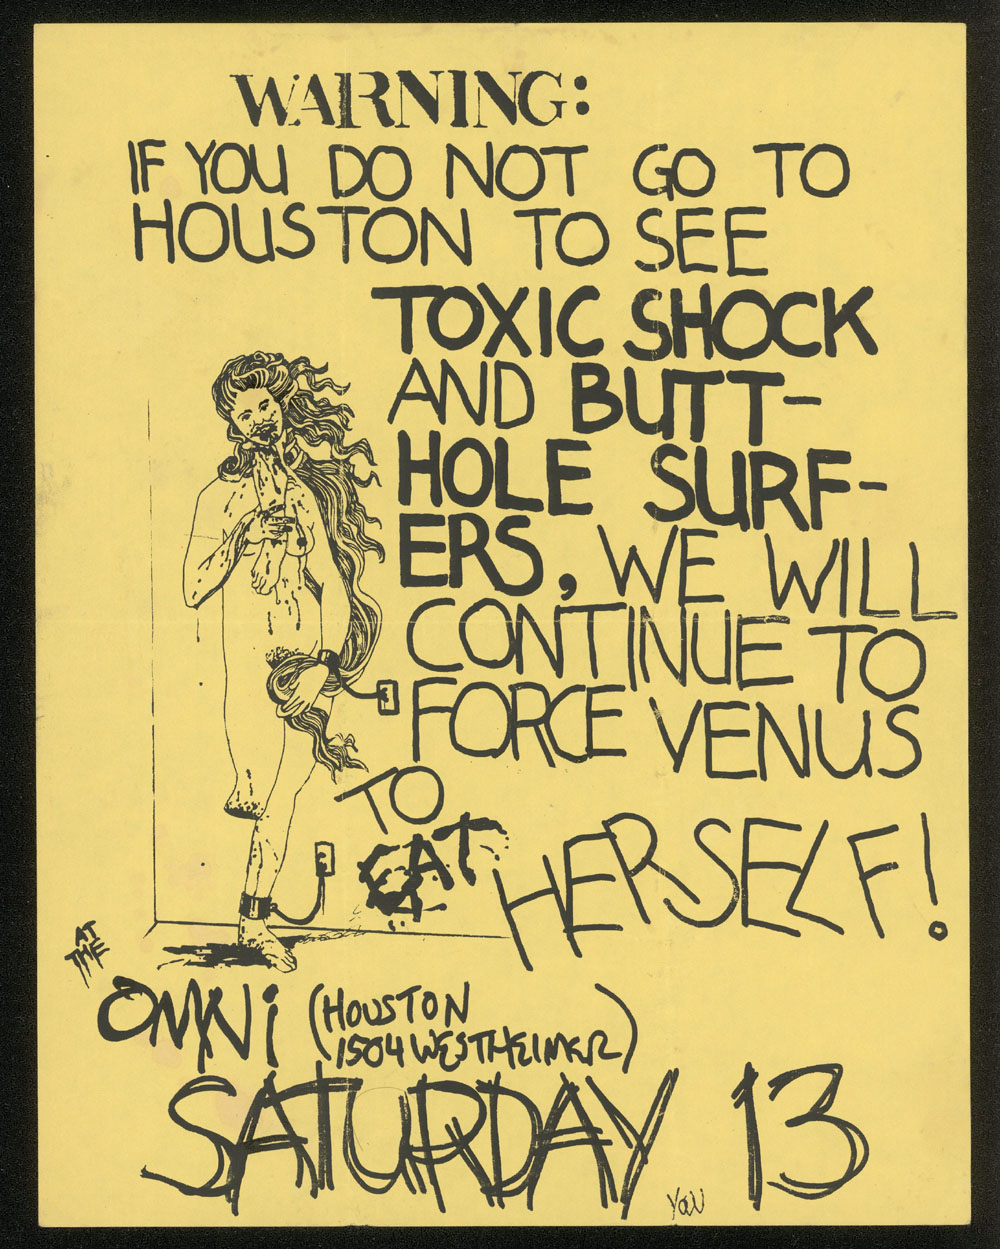 WARNING:
IF YOU DO NOT GO TO
HOUSTON TO SEE
TOXIC SHOCK
AND BUTT-
HOLE SURF-
ERS, WE WILL
CONTINUE TO
FORCE VENUS
TO
EAT HERSELF!
AT
THE
OMNi (HOUSTON
1504 WESTHEIMER)
SATURDAY 13